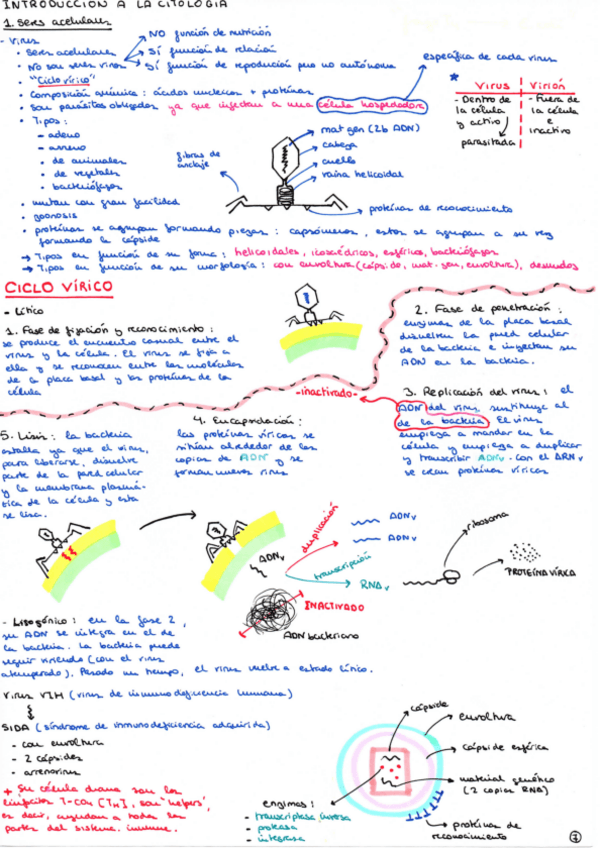 INTRODUCCIÓN A LA CITOLOGÍA
1. Seres acelulares
- Virus
• Seres acelulares
• No son seres vivos
NO función de nutrición
SÍ función de relación
SÍ función de reproducción pero no autónoma
• "Ciclo vírico"
• Composición química: ácidos nucleicos + proteínas
• Son parásitos obligados ya que infectan a una célula hospedadora
específica de cada virus
• Tipos:
- adeno
- arreno
- de animales
- de vegetales
- bacteriófagos
• mutan con gran facilidad
• zoonosis
• proteínas se agrupan formando piezas: capsómeros, estos se agrupan a su vez
formando la cápside
→ Tipos en función de su forma: helicoidales, icosaédricos, esféricos, bacteriófagos
→ Tipos en función de su morfología: con envoltura (cápside, mat. gen, envoltura), desnudos
fibras de
anclaje
mat gen (2b ADN)
cabeza
cuello
vaina helicoidal
proteínas de reconocimiento
Virus | Virión
- Dentro de
la célula
y activo
parasitada
- Fuera de
la célula
e
inactivo
CICLO VÍRICO
- Lítico
1. Fase de fijación y reconocimiento:
se produce el encuentro casual entre el
virus y la célula. El virus se fija a
ella y se reconocen entre las moléculas
de la placa basal y las proteínas de la
célula
2. Fase de penetración:
enzimas de la placa basal
disuelven la pared celular
de la bacteria e inyectan su
ADN en la bacteria.
3. Replicación del virus: el
ADN del virus sustituye al
de la bacteria. El virus
empieza a mandar en la
célula y empieza a duplicar
y transcribir ADNv. Con el ARNv
se crean proteínas víricas
-inactivado-
4. Encapsidación:
las proteínas víricas se
sitúan alrededor de las
copias de ADN y se
forman nuevos virus
5. Lisis: la bacteria
estalla ya que el virus,
para liberarse, disuelve
parte de la pared celular
y la membrana plasmá-
tica de la célula y esta
se lisa.
ADNv
duplicación
ADNv
ADNv
transcripción
RNAv
ribosoma
PROTEÍNA VÍRICA
INACTIVADO
ADN bacteriano
- Lisogénico: en la fase 2,
su ADN se integra en el de
la bacteria. La bacteria puede
seguir viviendo (con el virus
atemperado). Pasado un tiempo, el virus vuelve a estado lítico.
Virus VIH (virus de inmunodeficiencia humana)
SIDA (síndrome de inmunodeficiencia adquirida)
- con envoltura
- 2 cápsides
- arrenovirus
+ Su célula diana son los
linfocitos T-CD4 [TH], son "helpers",
es decir, ayudan a todos los
partes del sistema inmune.
enzimas:
- transcriptasa inversa
- proteasa
- integrasa
cápside
envoltura
cápside esférica
material genético
(2 copias RNA)
proteínas de
reconocimiento
1